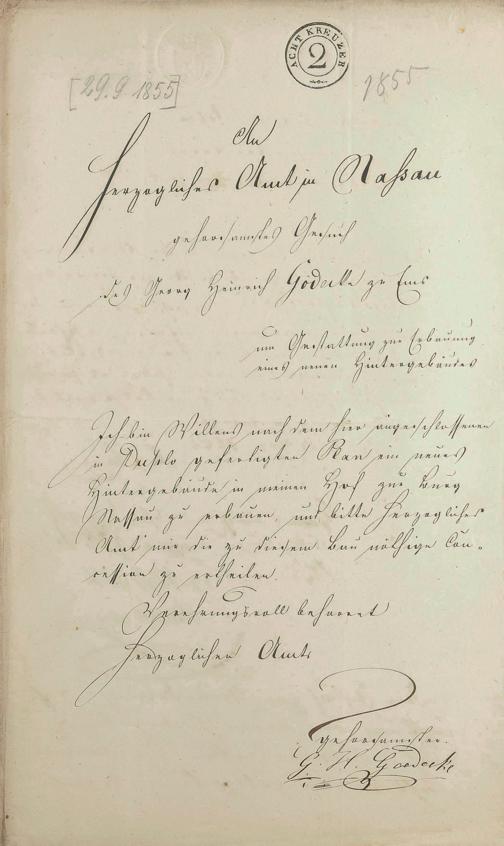 ACHT KREUZER
2
[29.9 1855]
1855
An
Herzogliches Amt in Nassau
gehorsamstes Gesuch
des Georg Heinrich Gödecke zu Ems
um Gestattung zur Erbauung
eines neuen Hintergebäudes
Ich bin Willens nach dem hier angeschlossenen
in Duplo gefertigten Plan ein neues
Hintergebäude in meinen Hof zur Burg
Nassau zu erbauen, und bitte Herzogliches
Amt mir die zu diesem Bau nöthige Con-
cession zu ertheilen.
Verehrungsvoll beharret
Herzoglichen Amts
gehorsamster
G. H. Goedecke